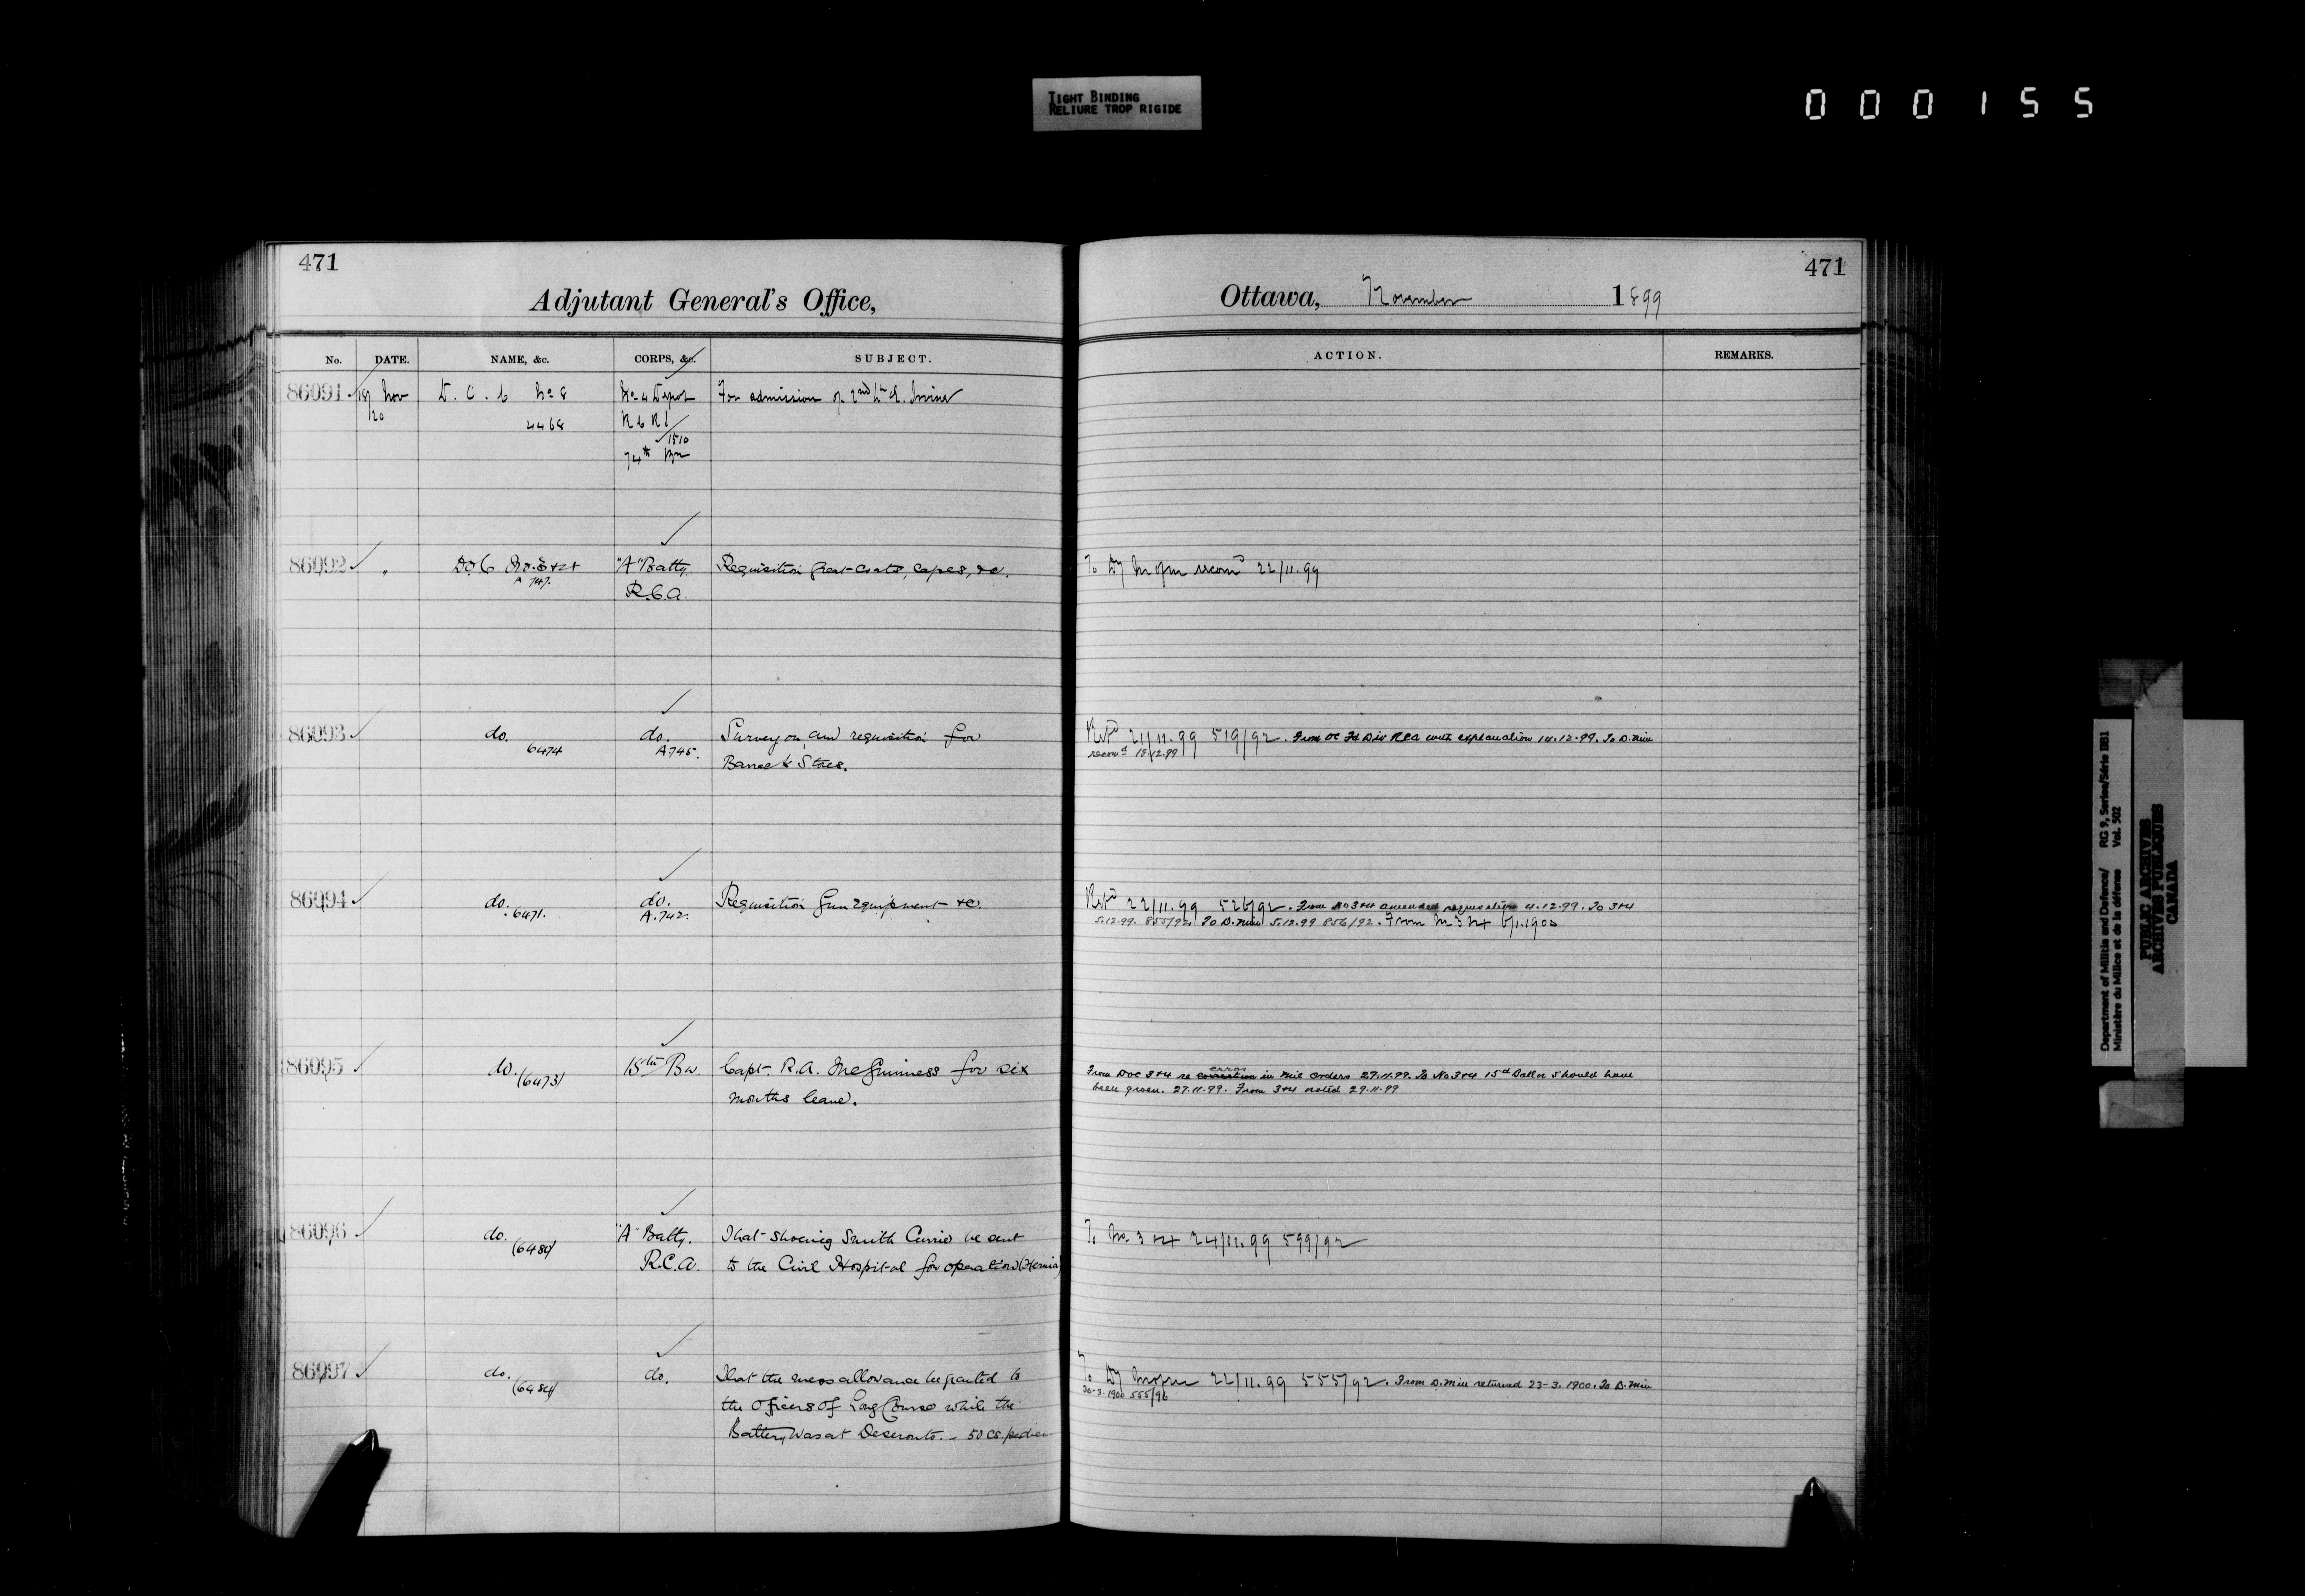 TIGHT BINDING
RELIURE TROP RIGIDE
000155
471
Adjutant General's Office,
No. DATE. NAME, &c. CORPS, &c. SUBJECT.
86091 18/20 Nov D.O.C No 8 No 4 Depot For admission of 2nd Lt
4468 R C R I
1510
74th Bn
86092 " D.O.C No. 3 & 4 "A" Batty. Requisition great-coats, capes, &c.
A 747. R.C.A.
86093 do. do. Survey on, and requisition for
6474 A.745.
Barrack Stores.
86094 do. do. Requisition Gun equipment &c.
6471. A.742.
86095 do. (6473) 15th Bn. Capt. R.A. McGuinness for six
months leave.
86096 do. "A" Batty. That Shoeing Smith Currie be sent
(6484) R.C.A. to the Civil Hospital for operation (Hernia)
86097 do. do. That the mess allowance be granted to
(6484) the Officers of Long Course while the
Battery was at Deseronto. - 50 cs. per diem
471
Ottawa, November 1899
ACTION. REMARKS.
To Dy M of M recomd 22/11.99
Retd 21/11.99 519/92. From OC Fd Div RCA with explanation 14.12.99. To D.Min
recomd 15/12.99
Retd 22/11.99 526/92. From No 3+4 amended requisition 4.12.99. To 3+4
5.12.99. 855/92. To D.Min 5.12.99 856/92. From No 3 & 4 6/1.1900
error
From DOC 3+4 re correction in Mil Orders 27.11.99. To No 3+4 15th Battn should have
been given. 27.11.99. From 3+4 noted 29.11.99
To No. 3 & 4 24/11.99 599/92
To Dy M of M 22/11.99 555/92. From D.Min returned 23-3.1900. To D.Min
26-3.1900 555/96
Department of Militia and Defence/ RG 9, Series/Série IIB1
Ministère du Milice et de la défense Vol. 502
PUBLIC ARCHIVES
ARCHIVES PUBLIQUES
CANADA